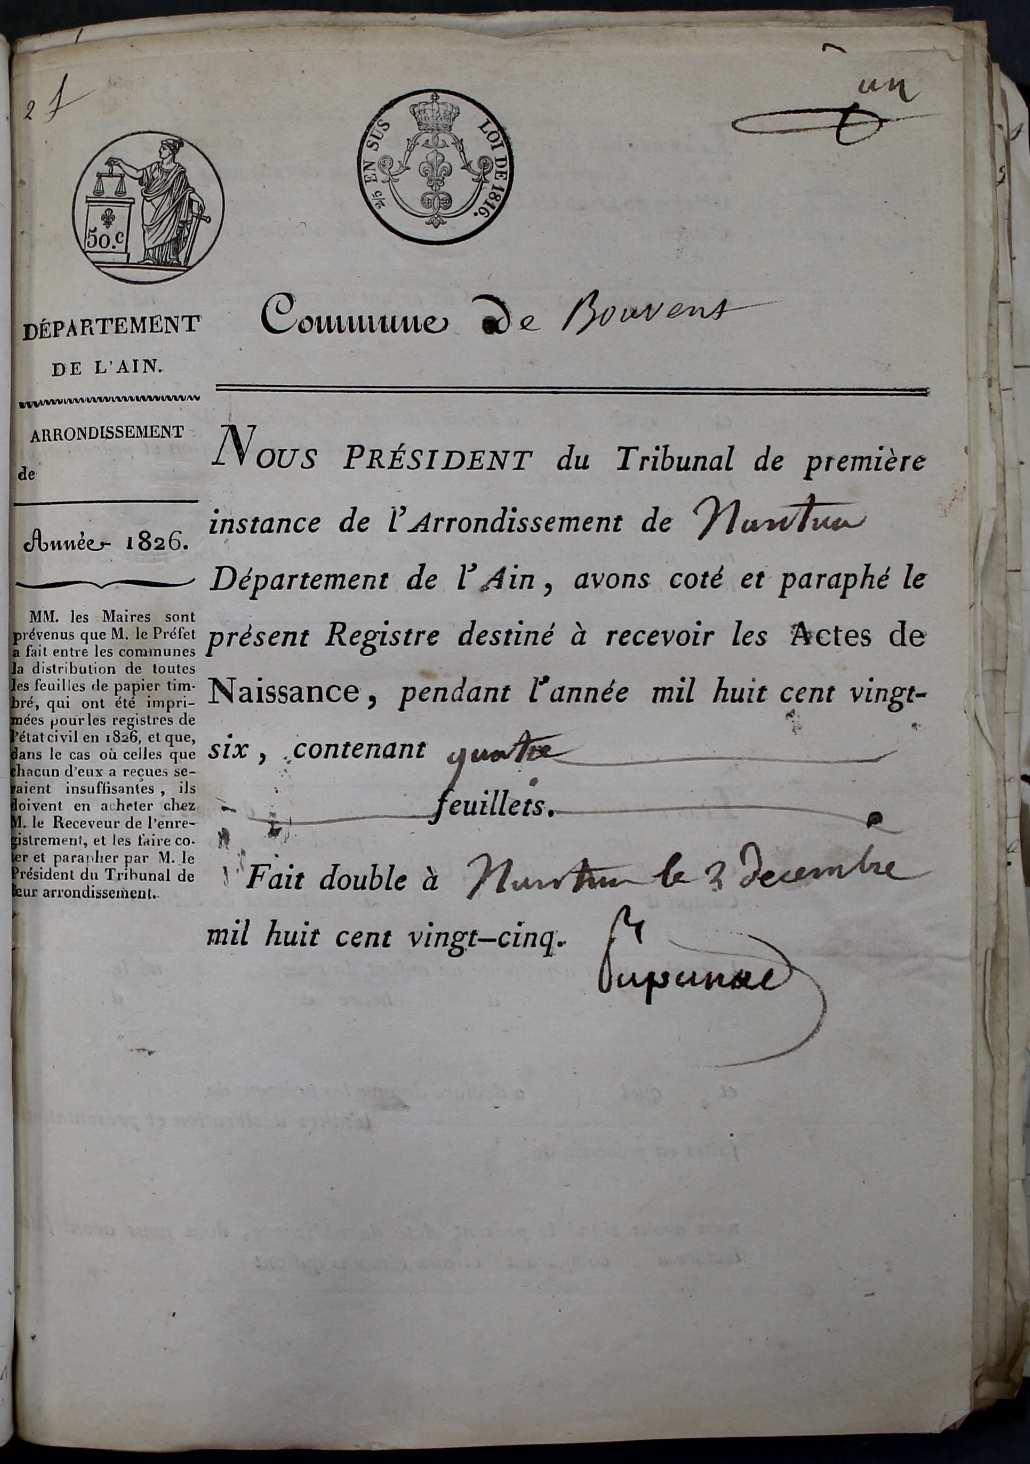 2 f
un
50.c
2/5 EN SUS LOI DE 1816.
DÉPARTEMENT
DE L'AIN.
ARRONDISSEMENT
de
Année 1826.
MM. les Maires sont
prévenus que M. le Préfet
a fait entre les communes
la distribution de toutes
les feuilles de papier tim-
bré, qui ont été impri-
mées pour les registres de
l'état civil en 1826, et que,
dans le cas où celles que
chacun d'eux a reçues se-
raient insuffisantes, ils
doivent en acheter chez
M. le Receveur de l'enre-
gistrement, et les faire co-
ter et parapher par M. le
Président du Tribunal de
leur arrondissement.
Commune de Bouvens
NOUS PRÉSIDENT du Tribunal de première
instance de l'Arrondissement de Nantua
Département de l'Ain, avons coté et paraphé le
présent Registre destiné à recevoir les Actes de
Naissance, pendant l'année mil huit cent vingt-
six, contenant quatre
feuillets.
Fait double à Nantua le 3 Decembre
mil huit cent vingt-cinq.